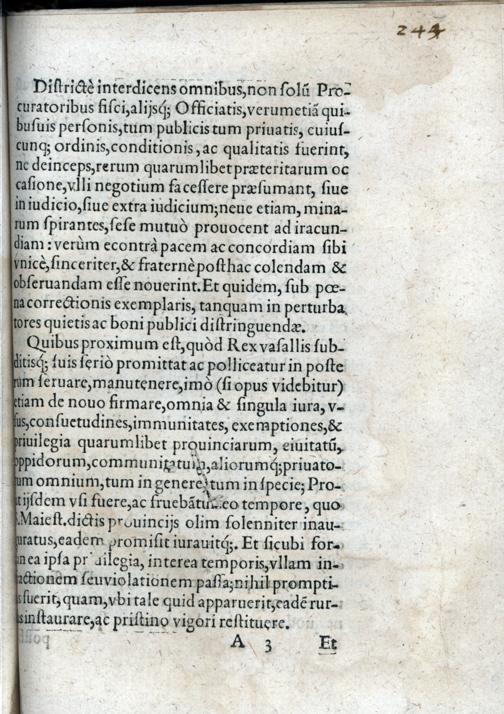 244
Districtè interdicens omnibus, non solū Pro-
curatoribus fisci, alijsq́; Officiatis, verumetiā qui-
busuis personis, tum publicis tum priuatis, cuius-
cunq; ordinis, conditionis, ac qualitatis fuerint,
ne deinceps, rerum quarumlibet præteritarum oc
casione, vlli negotium facessere præsumant, siue
in iudicio, siue extra iudicium; neue etiam, mina-
rum spirantes, sese mutuò prouocent ad iracun-
diam: verùm econtrà pacem ac concordiam sibi
vnicè, sinceriter, & fraternè posthac colendam &
obseruandam esse nouerint. Et quidem, sub pœ-
na correctionis exemplaris, tanquam in perturba
tores quietis ac boni publici distringuendæ.
Quibus proximum est, quòd Rex vasallis sub-
ditisq́; suis seriò promittat ac polliceatur in poste
rùm seruare, manutenere, imò (si opus videbitur)
etiam de nouo firmare, omnia & singula iura, v-
sus, consuetudines, immunitates, exemptiones, &
priuilegia quarumlibet prouinciarum, ciuitatū,
oppidorum, communitatum, aliorumq́; priuato-
rum omnium, tum in genere, tum in specie; Pro-
ut ijsdem vsi fuere, ac fruebātur eo tempore, quo
S. Maiest. dictis prouincijs olim solenniter inau-
guratus, eadem promisit iurauitq́;. Et sicubi for-
an ea ipsa priuilegia, interea temporis, vllam in-
fractionem seu violationem passa; nihil prompti-
us fuerit, quam, vbi tale quid apparuerit, eadē rur-
sus instaurare, ac pristino vigori restituere.
A 3 Et